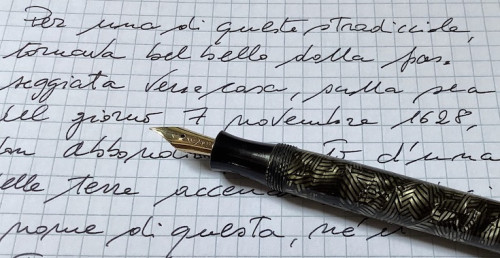 Per una di queste stradicciole,
tornava bel bello dalla pas-
seggiata verso casa, sulla sera
del giorno 7 novembre 1628,
don abbondio d'una
elle terre accen
nome di questa, né